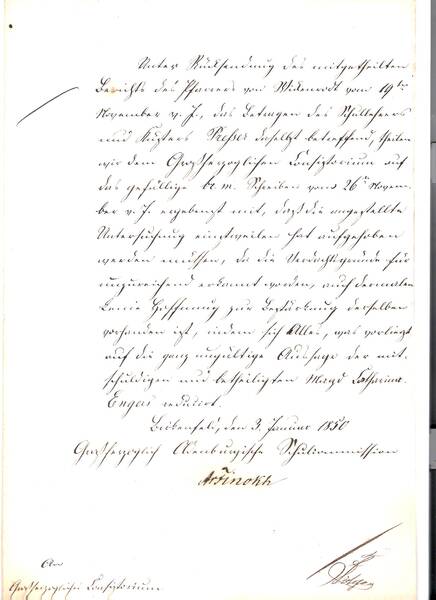 Unter Rücksendung des mitgetheilten
Berichts des Pfarrers von Wickenrodt vom 19ten
November v. J., das Betragen des Schullehrers
und Küsters daselbst betreffend, theilen
wir dem Großherzoglichen Consistorium auf
das gefällige Schreiben vom 26ten Novem-
ber v. J. ergebenst mit, daß die angestellte
Untersuchung einstweilen hat aufgehoben
werden müssen, da die Verdachtsgründe für
unzureichend erkannt worden, auch dermalen
keine Hoffnung zur Bestärkung derselben
vorhanden ist, indem sich Alles, was vorliegt
auf die ganz ungültige Aussage der mit-
schuldigen und betheiligten Magd Catharina
reducirt.
Birkenfeld, den 3. Januar 1850
Großherzoglich Oldenburgische Schulcommission
An
Großherzogliches Consistorium